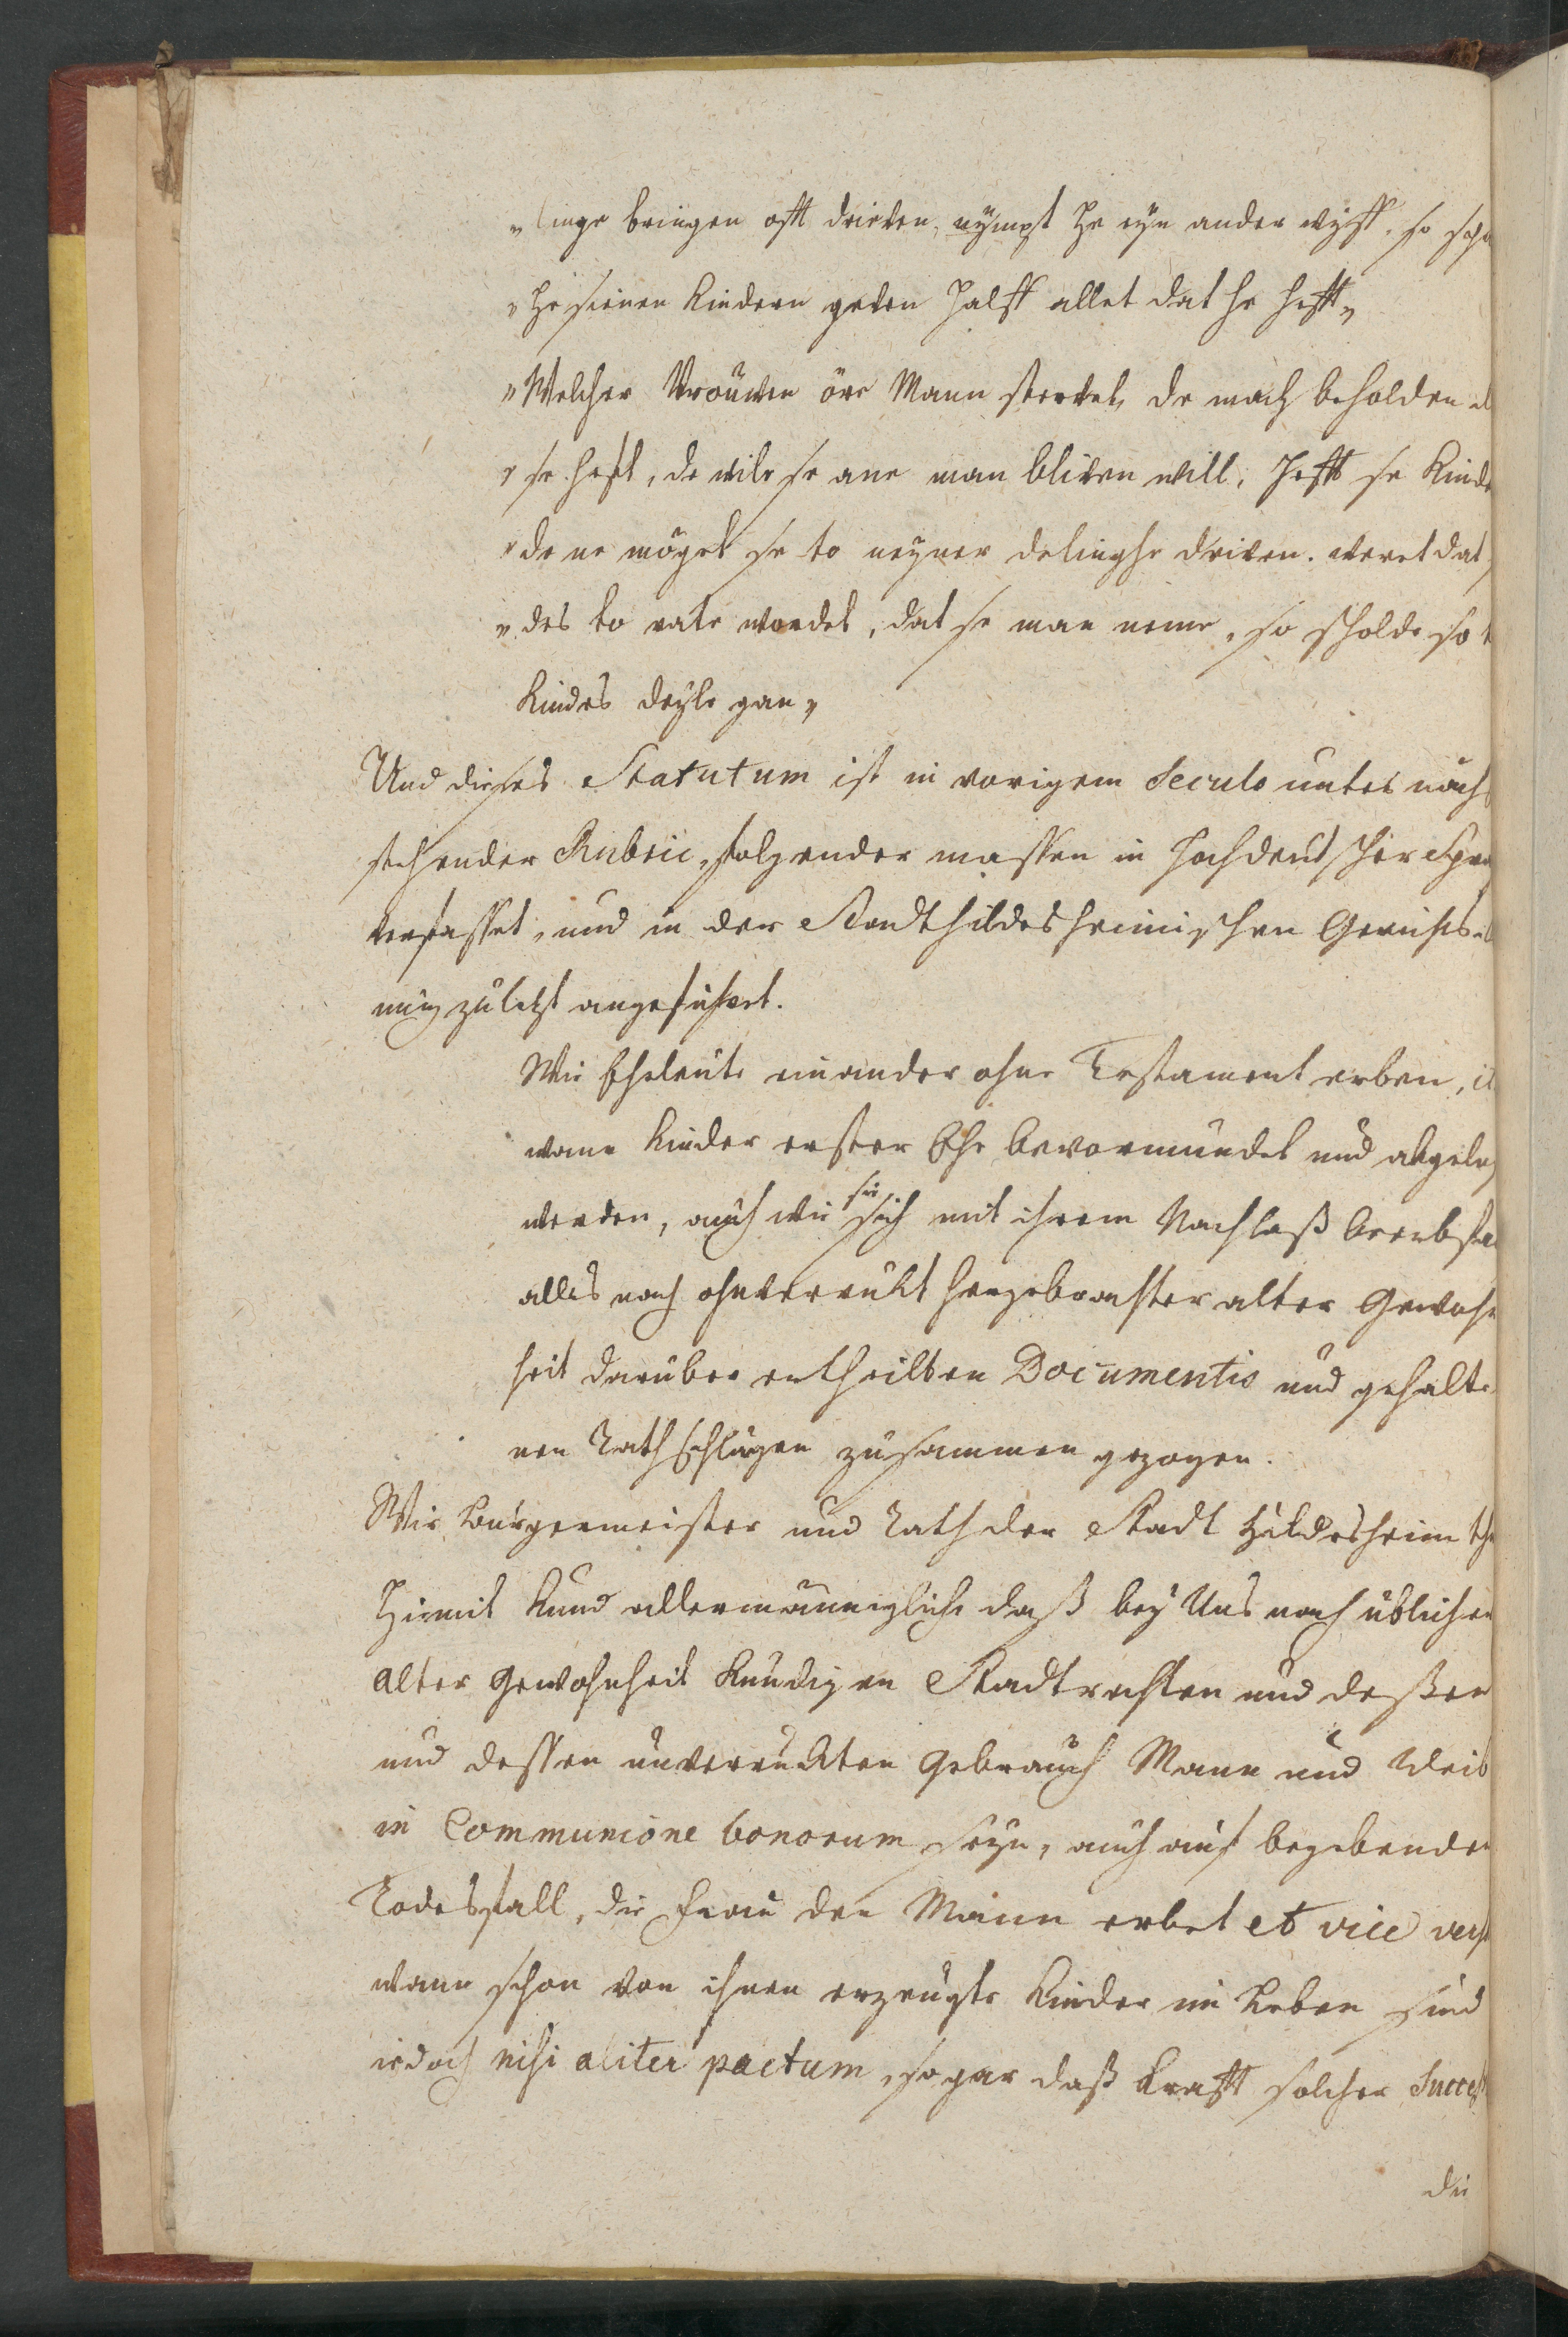 „linge bringen offt drieven, nympt he eyn ander wyff. so scha
„he sienen kindern geven halff allet dat he hefft„
„Welcher Vrouwen öre Mann stervet, de mach beholden al
„se heft, de wile se ane man bliven will, Hefft se Kinde
„de ne möget se to neyner delinghe driven. weret dat
„des to rate wordet, dat se man neme, so scholde se t
kindes deyle gan„
Und dieses Statutum ist in vorigem Seculo unter nach
stehender Rubric, folgender massen in hochdeutscher Spra
verfasset, und in der Stadt hildesheimischen Gerichts
nung zuletzt angeführet.
Wie Eheleute einander ohne Testament erben, it
wann Kinder erster Ehe bevormundet und abgeleg
werden, auch wie sie sich mit ihrem Nachlaß beerbfäl
alles nach ohnverrückt hergebrachter alter Gewohn
heit darüber ertheilten Documentis und gehalte
nen Rathschlägen zusammen gezogen.
Wir Burgermeister und Rath der Stadt Hildesheim thu
Hiemit Kund allermänniglich daß bey Uns nach üblichen
alter Gewohnheit kundigen Stadtrechten und deßen
und dessen unverrückten Gebrauch Mann und Weib
in Communione bonorum seyn, auch auf begebenden
Todesfall, die Frau den Mann erbet et vice vers
wann schon von ihnen erzeugte Kinder im Leben sind
iedoch nisi aliter pactum, sogar daß krafft solcher Success
die